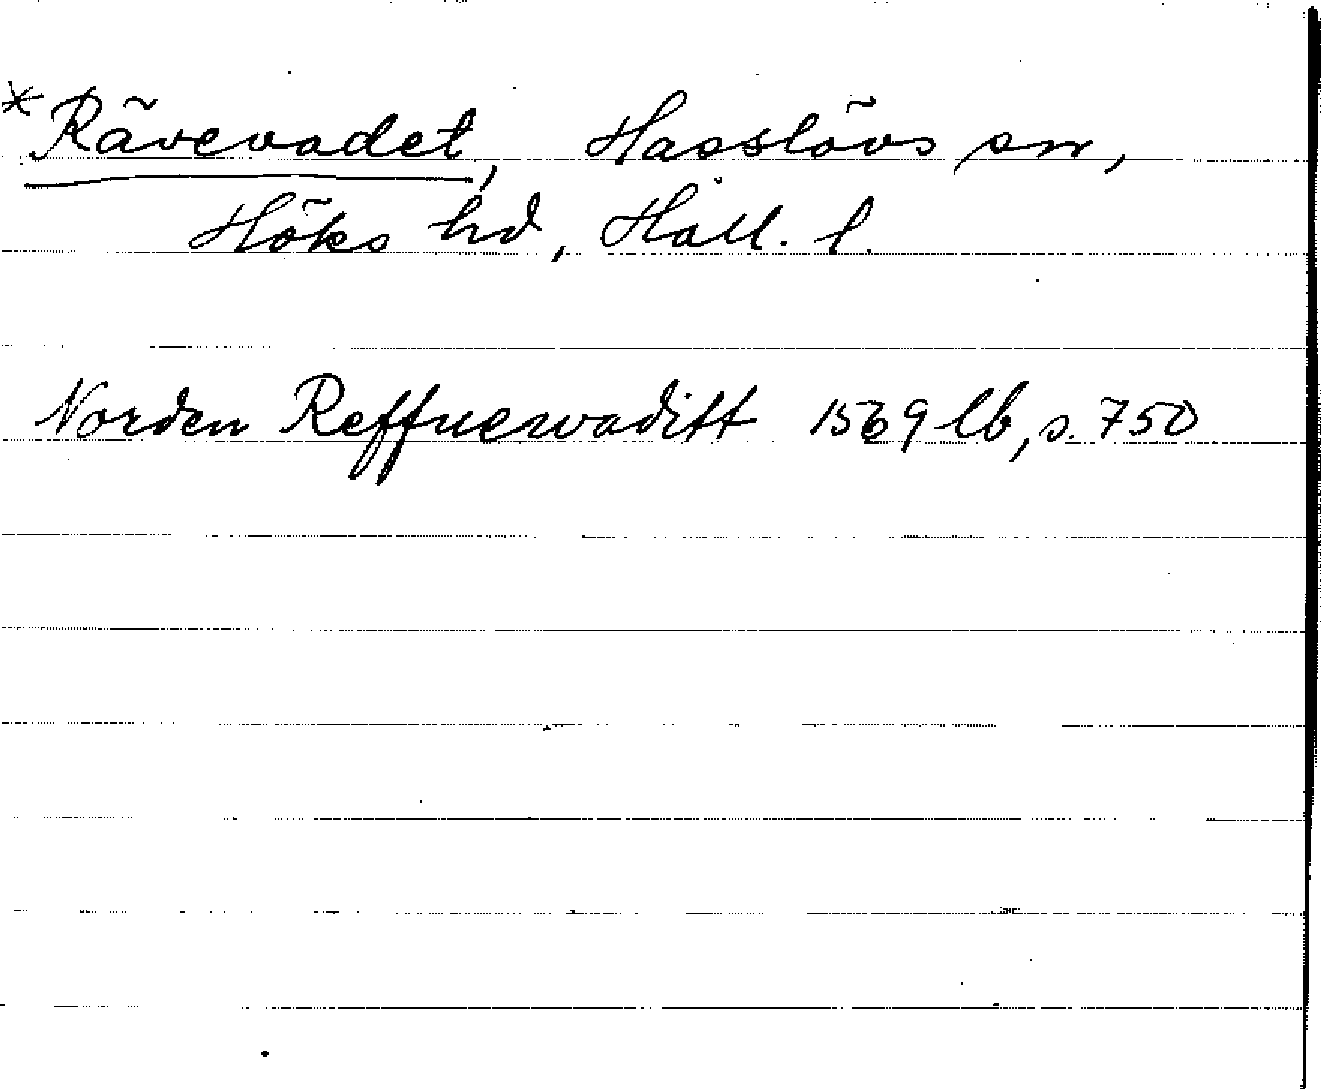 *Rävevadet, Hasslövs sn,
Höks hd, Hall. l.
Norden Reffuewaditt 1569 lb, s. 750